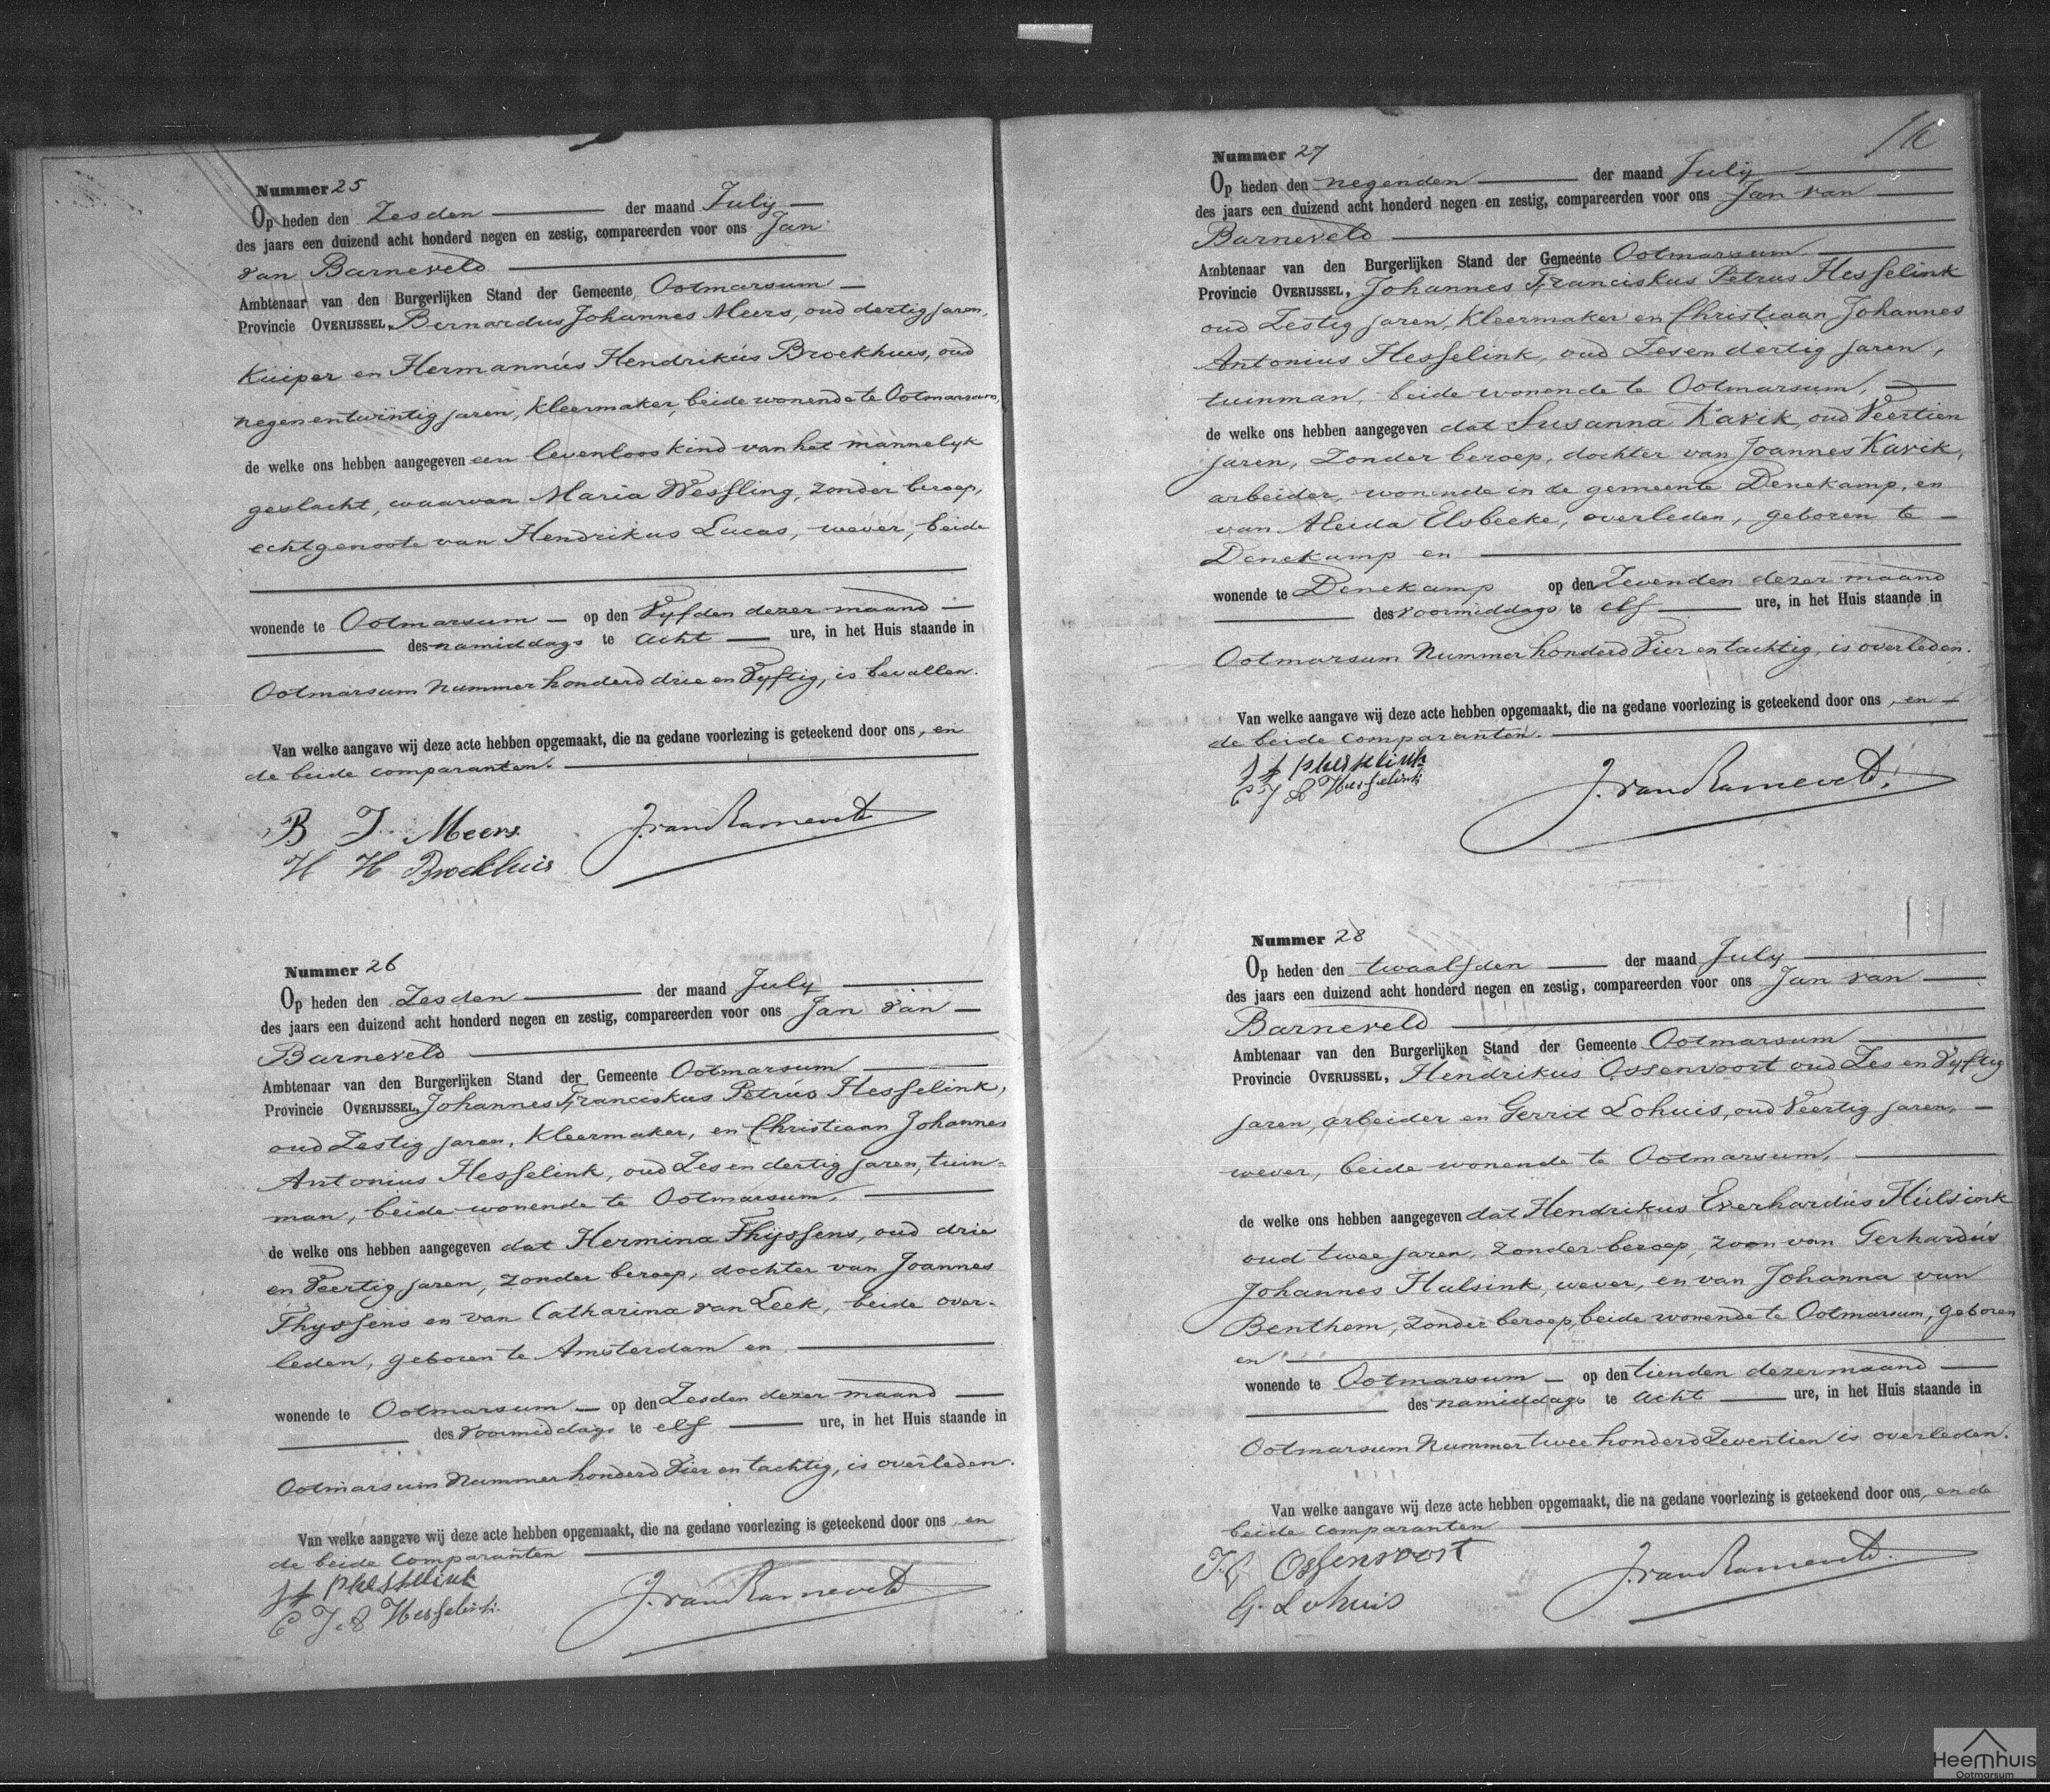 Nummer 25
Op heden den Zesden der maand July
des jaars een duizend acht honderd negen en zestig, compareerden voor ons Jan
van Barneveld
Ambtenaar van den Burgerlijken Stand der Gemeente Ootmarsum
Provincie OVERIJSSEL, Bernardus Johannes Meers, oud dertig jaren,
Kuiper en Hermannús Hendrikús Broekhuis, oud
negen en twintig jaren, Kleermaker, beide wonende te Ootmarsum,
de welke ons hebben aangegeven een levenloos kind van het mannelyk
geslacht, waarvan Maria Wessling, zonder beroep,
echtgenoote van Hendrikus Lucas, wever, beide
wonende te Ootmarsum op den Vyfden dezer maand
des namiddags te acht ure, in het Huis staande in
Ootmarsum nummer honderd drie en Vyftig, is bevallen.
Van welke aangave wij deze acte hebben opgemaakt, die na gedane voorlezing is geteekend door ons, en
de beide comparanten.
B J Meers J. van Barneveld
H H Broekhuis
Nummer 26
Op heden den Zesden der maand July
des jaars een duizend acht honderd negen en zestig, compareerden voor ons Jan van
Barneveld
Ambtenaar van den Burgerlijken Stand der Gemeente Ootmarsum
Provincie OVERIJSSEL, Johannes Franciskus Petrús Hesselink,
oud Zestig jaren, Kleermaker, en Christiaan Johannes
Antonius Hesselink, oud Zes en dertig jaren, tuin=
man, beide wonende te Ootmarsum,
de welke ons hebben aangegeven dat Hermina Thyssens, oud drie
en Veertig jaren, zonder beroep, dochter van Joannes
Thyssens en van Catharina van Leek, beide over-
leden, geboren te Amsterdam en
wonende te Ootmarsum op den Zesden dezer maand
des voormiddags te elf ure, in het Huis staande in
Ootmarsum Nummer honderd Vier en tachtig, is overleden.
Van welke aangave wij deze acte hebben opgemaakt, die na gedane voorlezing is geteekend door ons en
de beide comparanten
J f p hesselink J. van Barneveld
C J A Hesselink
16
Nummer 27
Op heden den negenden der maand July
des jaars een duizend acht honderd negen en zestig, compareerden voor ons Jan van
Barneveld
Ambtenaar van den Burgerlijken Stand der Gemeente Ootmarsum
Provincie OVERIJSSEL, Johannes Franciskus Petrus Hesselink
oud Zestig jaren, Kleermaker en Christiaan Johannes
Antonius Hesselink, oud Zes en dertig jaren,
tuinman, beide wonende te Ootmarsum,
de welke ons hebben aangegeven dat Susanna Kavik, oud Veertien
jaren, zonder beroep, dochter van Joannes Kavik,
arbeider, wonende in de gemeente Denekamp, en
van Aleida Elsbeeke, overleden, geboren te
Denekamp en
wonende te Denekamp op den Zevenden dezer maand
des voormiddags te elf ure, in het Huis staande in
Ootmarsum Nummer honderd Vier en tachtig, is overleden.
Van welke aangave wij deze acte hebben opgemaakt, die na gedane voorlezing is geteekend door ons, en
de beide comparanten.
J f p hesselink J. van Barneveld.
C J A Hesselink
Nummer 28
Op heden den twaalfden der maand July
des jaars een duizend acht honderd negen en zestig, compareerden voor ons Jan van
Barneveld
Ambtenaar van den Burgerlijken Stand der Gemeente Ootmarsum
Provincie OVERIJSSEL, Hendrikus Ossenvoort oud Zes en Vyftig
jaren, arbeider en Gerrit Lohuis, oud Veertig jaren,
wever, beide wonende te Ootmarsum,
de welke ons hebben aangegeven dat Hendrikus Everhardús Húlsink
oud twee jaren, zonder beroep, zoon van Gerhardús
Johannes Hulsink, wever, en van Johanna van
Benthem, zonder beroep, beide wonende te Ootmarsum, geboren
en
wonende te Ootmarsum op den tienden dezer maand
des namiddags te acht ure, in het Huis staande in
Ootmarsum Nummer twee honderd Zeventien is overleden.
Van welke aangave wij deze acte hebben opgemaakt, die na gedane voorlezing is geteekend door ons, en de
beide comparanten
Ossenvoort J. van Barneveld.
G. Lohuis
Heemhuis
Ootmarsum